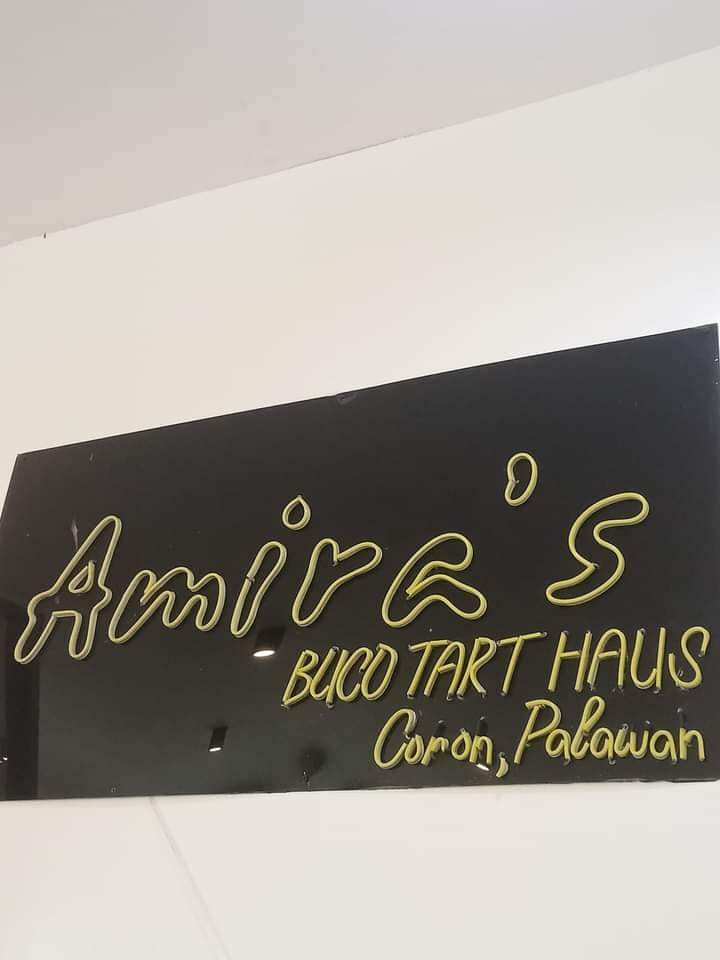 Amira's
BUCO TART HAUS
Coron, Palawan